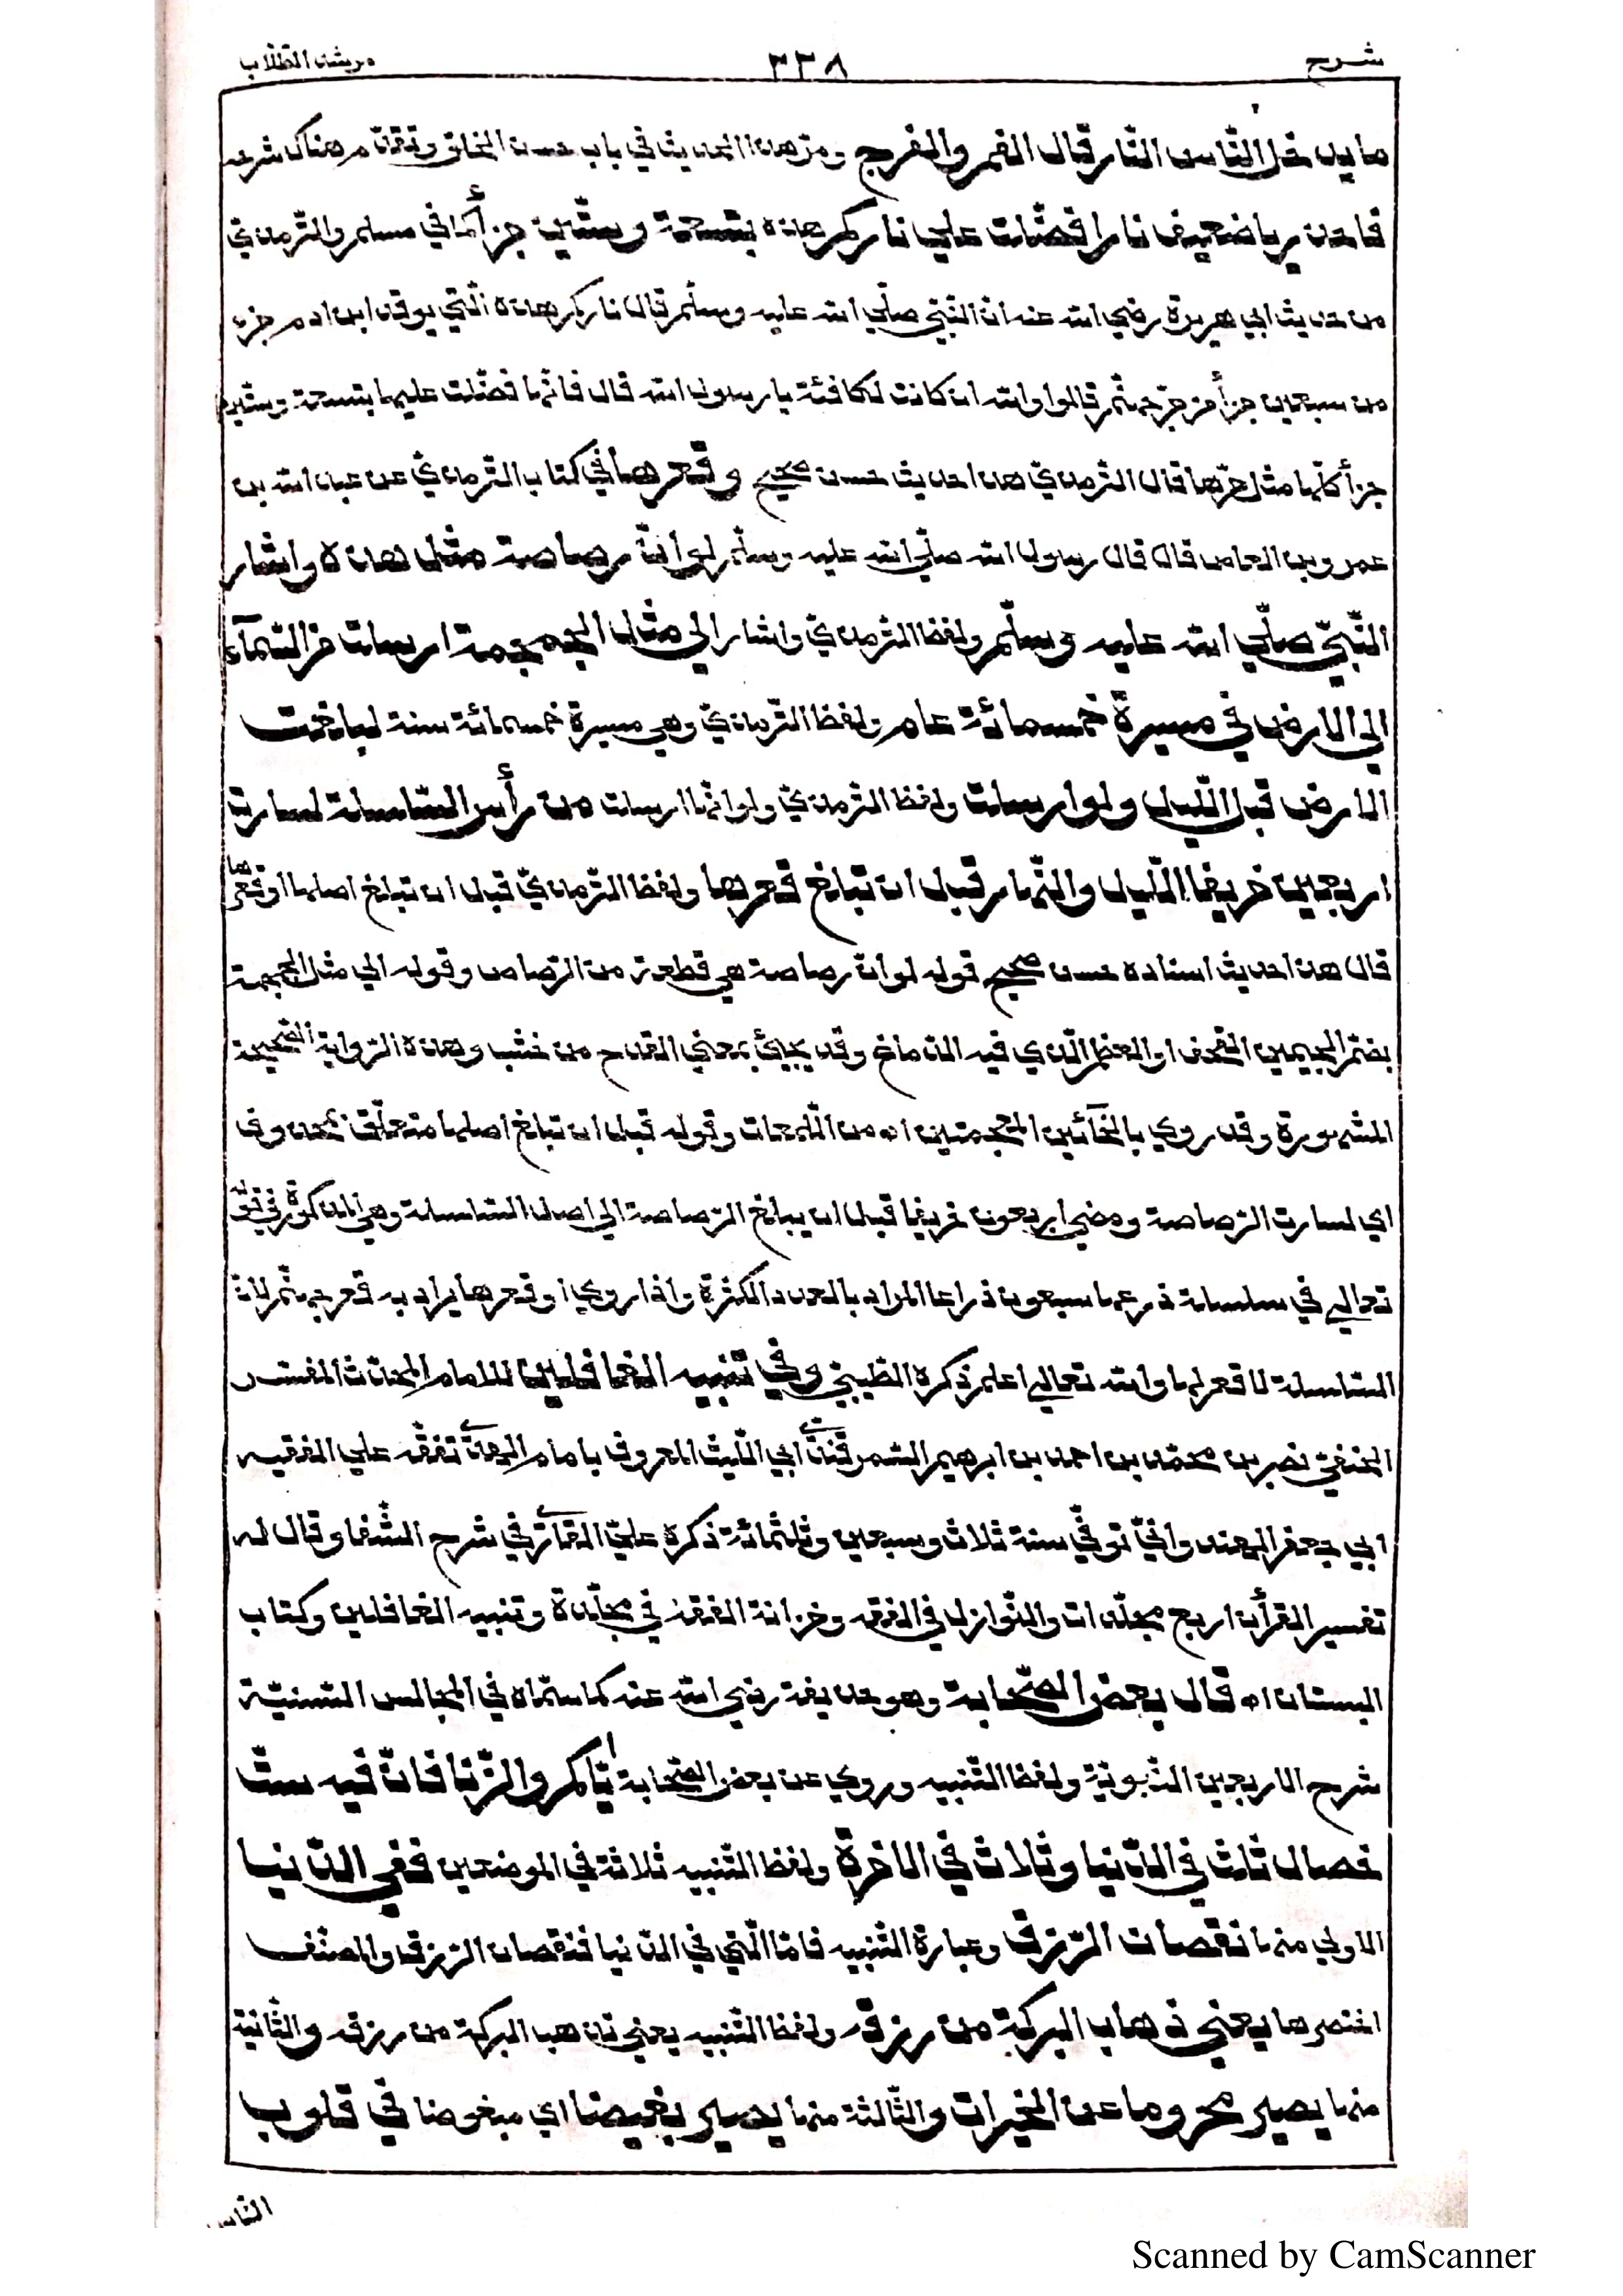 شرح ٣٣٨ مرشد الطّلّاب
ما يدخل النّاس النّار قال الفمر والفرج ومرّ هذا الحديث في باب حسن الخلق وتقدّم هناك شرحه
فاحذر يا ضعيف نارا فضّلت علي ناركم هذه بتسعة وستّين جزأ كما في مسلم والتّرمذيّ
من حديث ابي هريرة رضي الله عنه انّ النّبيّ صلّي الله عليه وسلّم قال ناركم هذه الّتي يوقد ابن ادم جزء
من سبعين جزأ من حرّ جهنّم قالوا والله ان كانت لكافئة يا رسول الله قال فانّها فضّلت عليها بتسعة وستّين
جزأ كلّها مثل حرّها قال التّرمذيّ هذا حديث حسن صحيح وقعرها في كتاب التّرمذيّ عن عبد الله بن
عمرو بن العاص قال قال رسول الله صلّي الله عليه وسلّم لو انّ رصاصة مثل هذه واشار
النّبيّ صلّي الله عليه وسلّم ولفظ التّرمذيّ واشار الي مثل الجمجمة ارسلت من السّمآء
الي الارض في مسيرة خمسمائة عام ولفظ التّرمذيّ وهي مسيرة خمسمائة سنة لبلغت
الارض قبل اللّيل ولو ارسلت ولفظ التّرمذيّ ولو انّها ارسلت من رأس السّلسلة لسارت
اربعين خريفا اللّيل والنّهار قبل ان تبلغ قعرها ولفظ التّرمذيّ قبل ان تبلغ اصلها او قعرها
قال هذا حديث اسناده حسن صحيح قوله لو انّ رصاصة هي قطعة من الرّصاص وقوله الي مثل الجمجمة
بضمّ الجيمين القحف او العظم الّذي فيه الدّماغ وقد يجيئ بمعني القدح من خشب وهذه الرّواية الصّحيحة
المشهورة وقد روي بالخآئين المعجمتين اه من اللّمعات وقوله قبل ان تبلغ اصلها متعلّق بمحذوف
اي لسارت الرّصاصة ومضي اربعون خريفا قبل ان يبلغ الرّصاصة الي اصل السّلسلة وهي المذكورة في قوله
تعالي في سلسلة ذرعها سبعون ذراعا المراد بالعدد الكثرة واذا روي او قعرها يراد به قعر جهنّم لانّ
السّلسلة لا قعر لها والله تعالي اعلم ذكره الطّيبيّ وفي تنبيه الغافلين للامام المحدّث المفسّر
الحنفيّ نصر بن محمّد بن احمد بن ابرهيم السّمرقنديّ ابي اللّيث المعروف بامام الهديّ تفقّه علي الفقيه
ابي جعفر الهندوانيّ توفّي سنة ثلاث وسبعين وثلثمائة ذكره عليّ القاريّ في شرح الشّفا وقال له
تفسير القرأن اربع مجلّدات والنّوازل في الفقه وخزانة الفقه في مجلّدة وتنبيه الغافلين وكتاب
البستان اه قال بعض الصّحابة وهو حذيفة رضي الله عنه كما سمّاه في المجالس السّنيّة
شرح الاربعين النّبويّة ولفظ التّنبيه وروي عن بعض الصّحابة ايّاكم والزّنا فانّ فيه ستّ
خصال ثلث في الدّنيا وثلاث في الاخرة ولفظ التّنبيه ثلاثة في الموضعين ففي الدّنيا
الاولي منها نقصان الرّزق وعبارة التّنبيه فامّا الّتي في الدّنيا فنقصان الرّزق والمصنّف
اختصرها يعني ذهاب البركة من رزقه ولفظ التّنبيه يعني تذهب البركة من رزقه والثّانية
منها يصير محروما عن الخيرات والثّالثة منها يصير بغيضا اي مبغوضا في قلوب
النّاس
Scanned by CamScanner